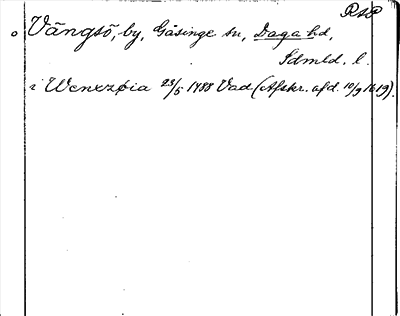 RsP
Vängsö, by, Gåsinge sn, Daga hd,
Sdmld. l.
i Wenxzøia 23/5 1488 Vad (Afskr. afd. 10/9 1619).